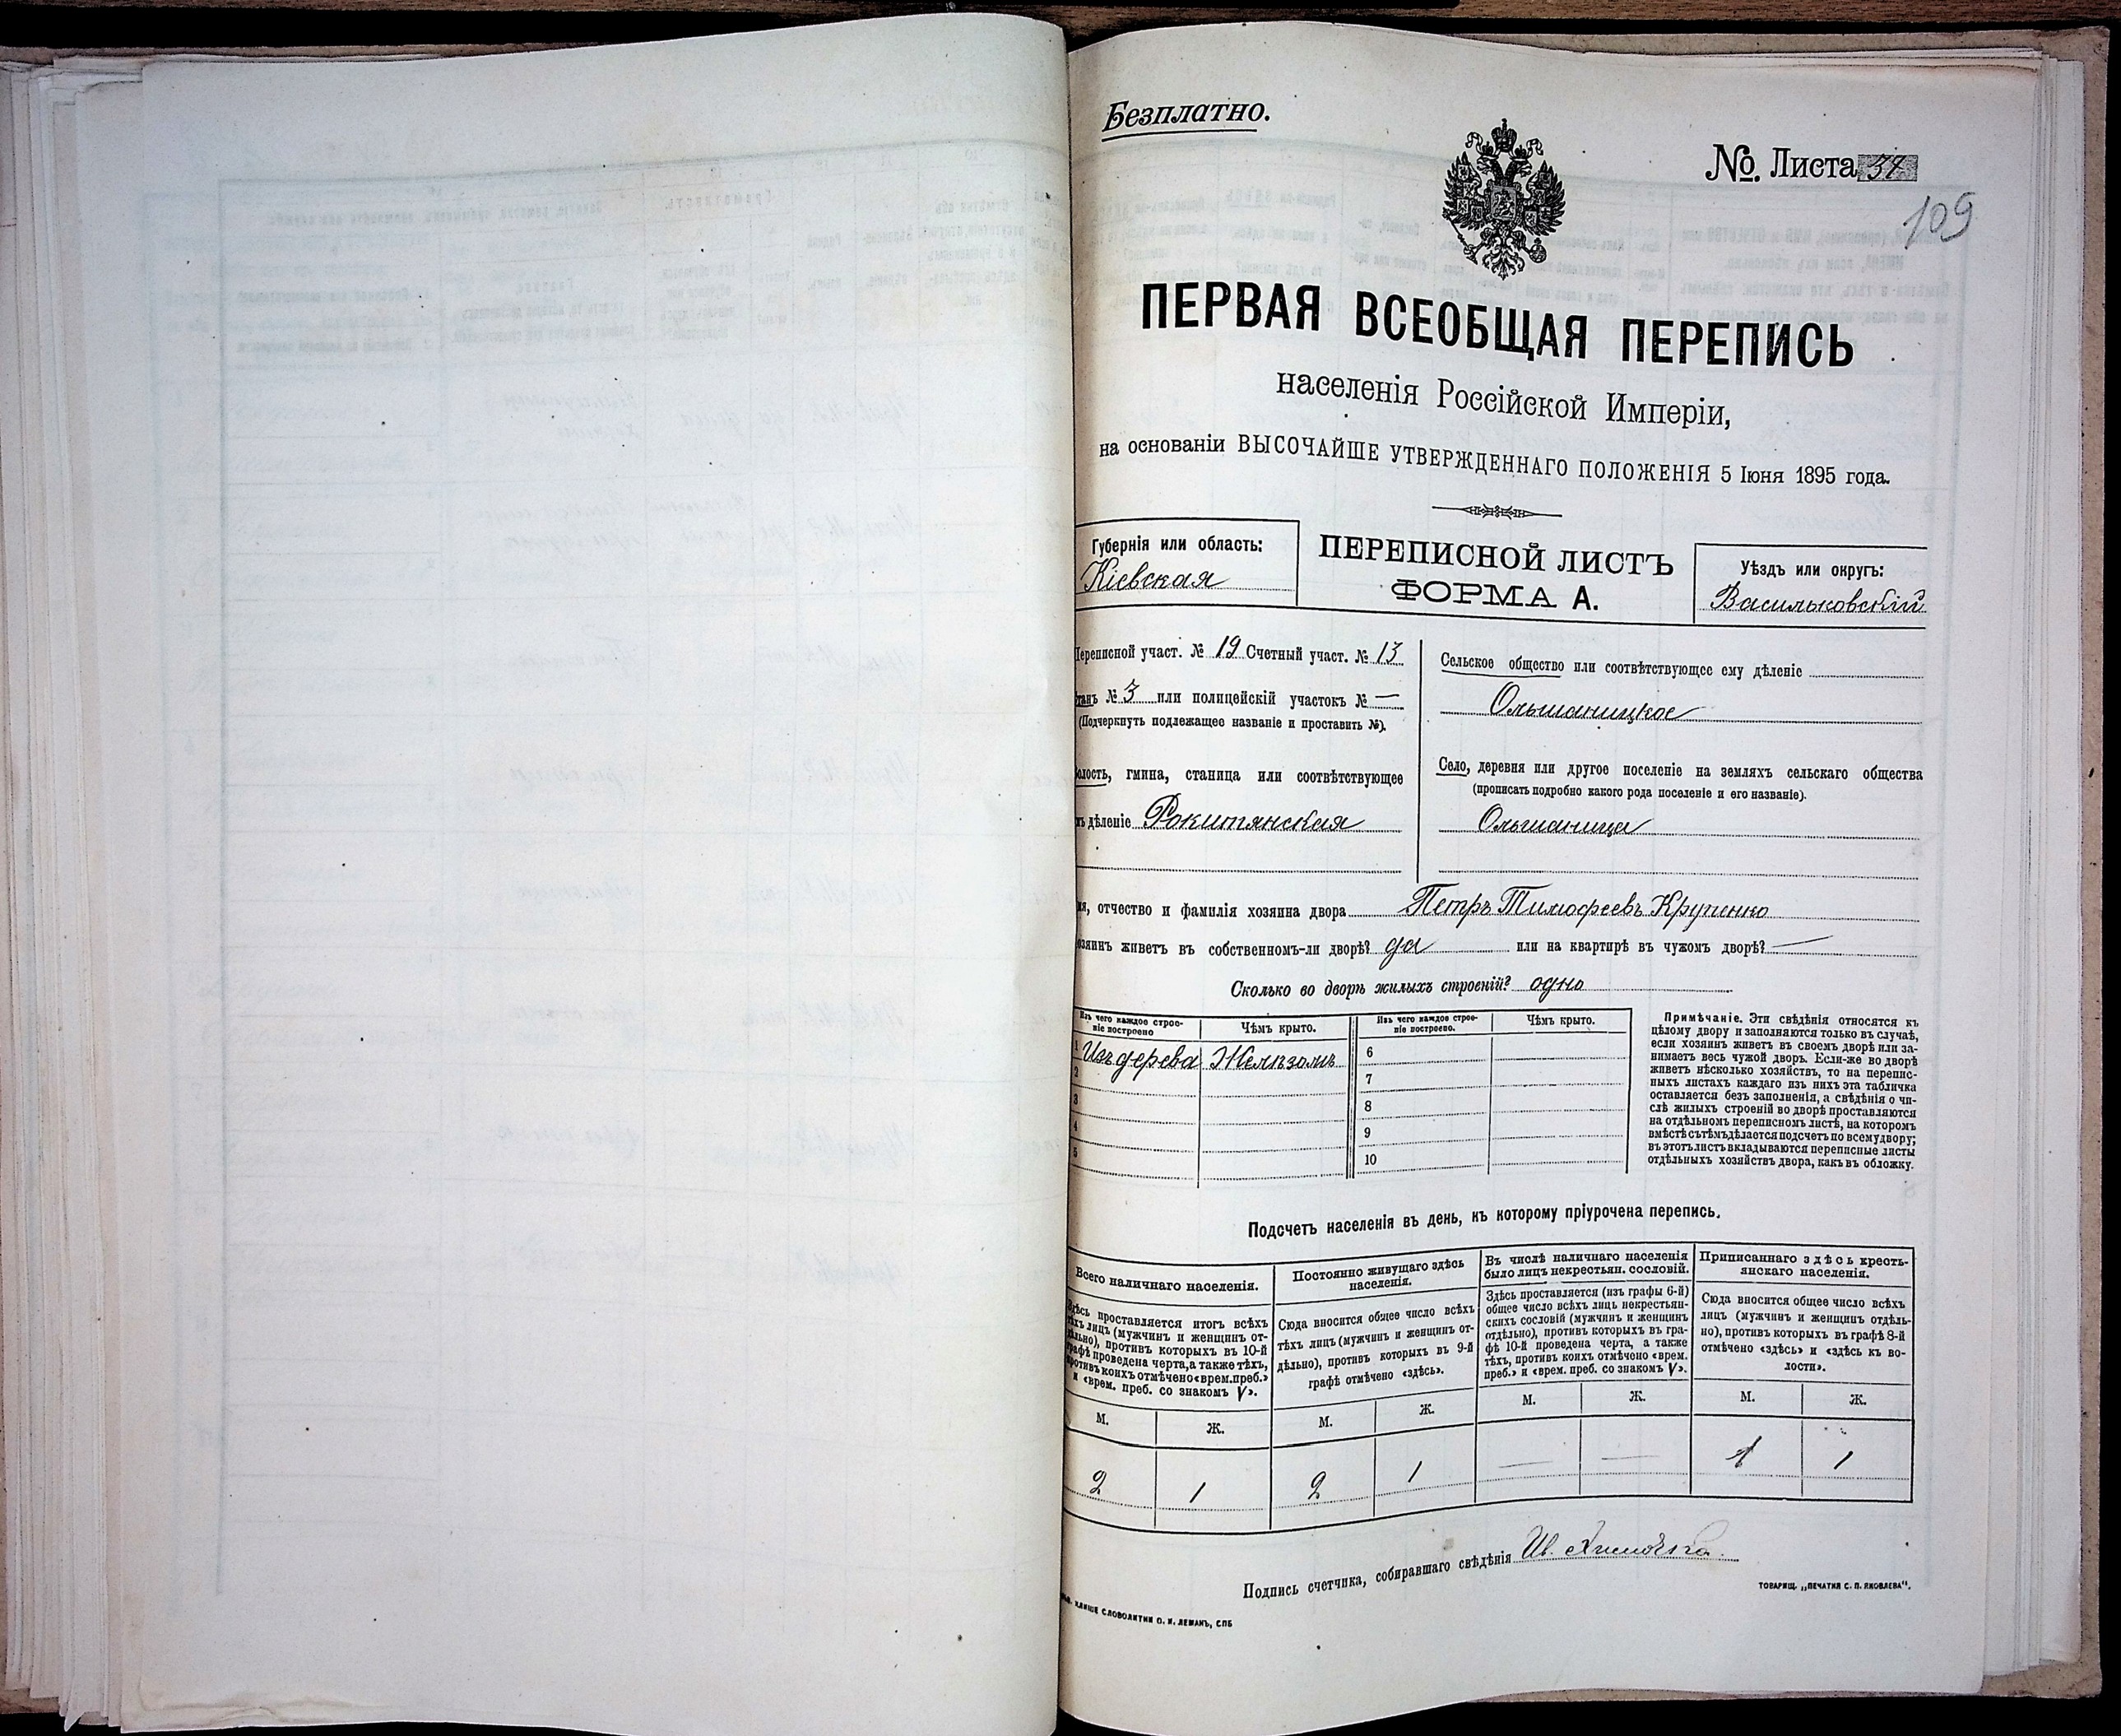 Безплатно.
№. Листа 34
109
ПЕРВАЯ ВСЕОБЩАЯ ПЕРЕПИСЬ
населенія Россійской Имперіи,
на основаніи ВЫСОЧАЙШЕ УТВЕРЖДЕННАГО ПОЛОЖЕНІЯ 5 Іюня 1895 года.
Губернія или область:
Кіевская
ПЕРЕПИСНОЙ ЛИСТЪ
ФОРМА А.
Уѣздъ или округъ:
Васильковскій
Переписной участ. № 19 Счетный участ. № 13
танъ № 3 или полицейскій участокъ № —
(Подчеркнуть подлежащее названіе и проставить №).
олость, гмина, станица или соотвѣтствующее
ъ дѣленіе Рокитянская
Сельское общество или соотвѣтствующее ему дѣленіе
Ольшаницкое
Село, деревня или другое поселеніе на земляхъ сельскаго общества
(прописать подробно какого рода поселеніе и его названіе).
Ольшаница
я, отчество и фамилія хозяина двора Петръ Тимофеевъ Крупенко
озяинъ живетъ въ собственномъ-ли дворѣ? да или на квартирѣ въ чужомъ дворѣ? —
Сколько во дворѣ жилыхъ строеній? одно
Изъ чего каждое строе-
ніе построено
Чѣмъ крыто.
Изъ чего каждое строе-
ніе построено.
Чѣмъ крыто.
1 Изъ дерева Желѣзомъ
2
3
4
5
6
7
8
9
10
Примѣчаніе. Эти свѣдѣнія относятся къ
цѣлому двору и заполняются только въ случаѣ,
если хозяинъ живетъ въ своемъ дворѣ или за-
нимаетъ весь чужой дворъ. Если-же во дворѣ
живетъ нѣсколько хозяйствъ, то на перепис-
ныхъ листахъ каждаго изъ нихъ эта табличка
оставляется безъ заполненія, а свѣдѣнія о чи-
слѣ жилыхъ строеній во дворѣ проставляются
на отдѣльномъ переписномъ листѣ, на которомъ
вмѣстѣ съ тѣмъ дѣлается подсчетъ по всему двору;
въ этотъ листъ вкладываются переписные листы
отдѣльныхъ хозяйствъ двора, какъ въ обложку.
Подсчетъ населенія въ день, къ которому пріурочена перепись.
Всего наличнаго населенія.
Здѣсь проставляется итогъ всѣхъ
тѣхъ лицъ (мужчинъ и женщинъ от-
дѣльно), противъ которыхъ въ 10-й
графѣ проведена черта, а также тѣхъ,
противъ коихъ отмѣчено «врем. преб.»
и «врем. преб. со знакомъ V».
М. Ж.
2 1
Постоянно живущаго здѣсь
населенія.
Сюда вносится общее число всѣхъ
тѣхъ лицъ (мужчинъ и женщинъ от-
дѣльно), противъ которыхъ въ 9-й
графѣ отмѣчено «здѣсь».
М. Ж.
2 1
Въ числѣ наличнаго населенія
было лицъ некрестьян. сословій.
Здѣсь проставляется (изъ графы 6-й)
общее число всѣхъ лицъ некрестьян-
скихъ сословій (мужчинъ и женщинъ
отдѣльно), противъ которыхъ въ гра-
фѣ 10-й проведена черта, а также
тѣхъ, противъ коихъ отмѣчено «врем.
преб.» и «врем. преб. со знакомъ V».
М. Ж.
— —
Приписаннаго здѣсь кресть-
янскаго населенія.
Сюда вносится общее число всѣхъ
лицъ (мужчинъ и женщинъ отдѣль-
но), противъ которыхъ въ графѣ 8-й
отмѣчено «здѣсь» и «здѣсь къ во-
лости».
М. Ж.
1 1
Подпись счетчика, собиравшаго свѣдѣнія Ив.
КЛИШЕ СЛОВОЛИТНИ О. И. ЛЕМАНЪ, СПБ
ТОВАРИЩ. „ПЕЧАТНЯ С. П. ЯКОВЛЕВА".